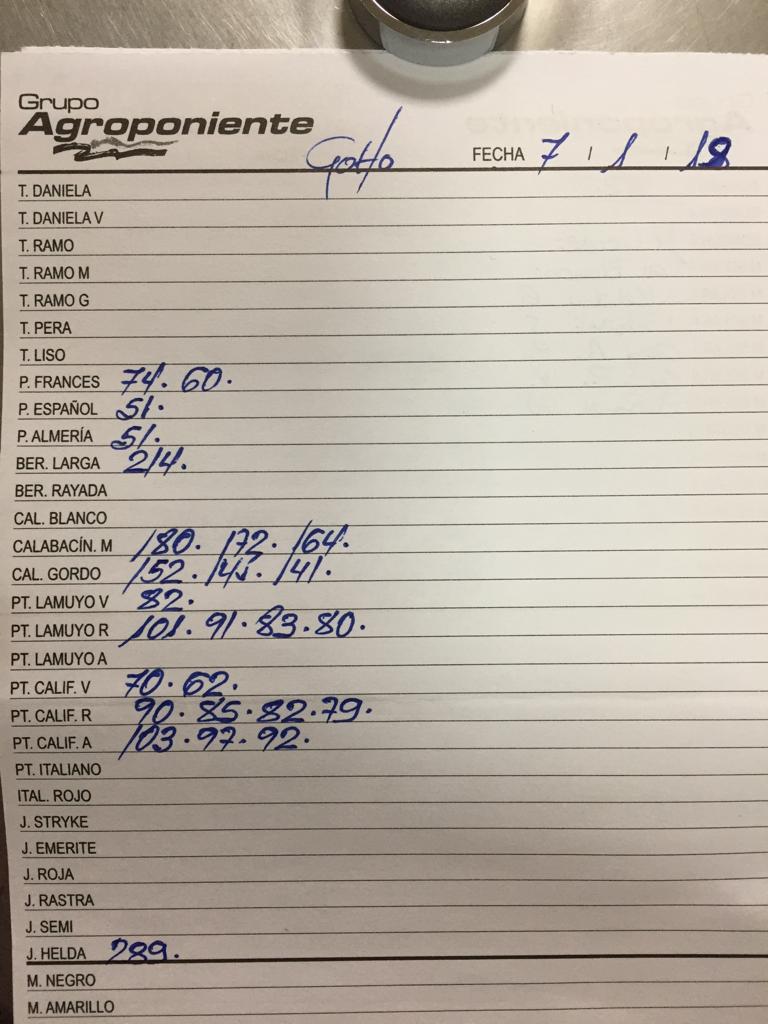 Grupo
Agroponiente
Gotto FECHA 7 / 1 / 18
T. DANIELA
T. DANIELA V
T. RAMO
T. RAMO M
T. RAMO G
T. PERA
T. LISO
P. FRANCES 74. 60.
P. ESPAÑOL 51.
P. ALMERÍA 51.
BER. LARGA 214.
BER. RAYADA
CAL. BLANCO
CALABACÍN. M 180. 172. 164.
CAL. GORDO 152. 145. 141.
PT. LAMUYO V 82.
PT. LAMUYO R 101. 91. 83. 80.
PT. LAMUYO A
PT. CALIF. V 70. 62.
PT. CALIF. R 90. 85. 82. 79.
PT. CALIF. A 103. 97. 92.
PT. ITALIANO
ITAL. ROJO
J. STRYKE
J. EMERITE
J. ROJA
J. RASTRA
J. SEMI
J. HELDA 289.
M. NEGRO
M. AMARILLO